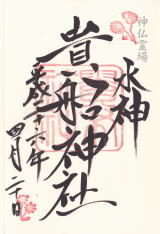 神仏霊場
水神
貴船神社
平成二十六年
四月二十日